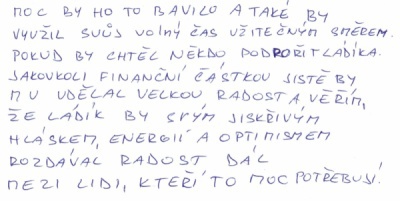 MOC BY HO TO BAVILO A TAKÉ BY
VYUŽIL SVŮJ VOLNÝ ČAS UŽITEČNÝM SMĚREM.
POKUD BY CHTĚL NĚKDO PODPOŘIT LÁDÍKA.
JAKOUKOLI FINANČNÍ ČÁSTKOU JISTĚ BY
MU UDĚLAL VELKOU RADOST A VĚŘÍM,
ŽE LÁDÍK BY SVÝM JISKŘIVÝM
HLÁSKEM, ENERGIÍ A OPTIMISMEM
ROZDÁVAL RADOST DÁL
MEZI LIDI, KTEŘÍ TO MOC POTŘEBUJÍ.